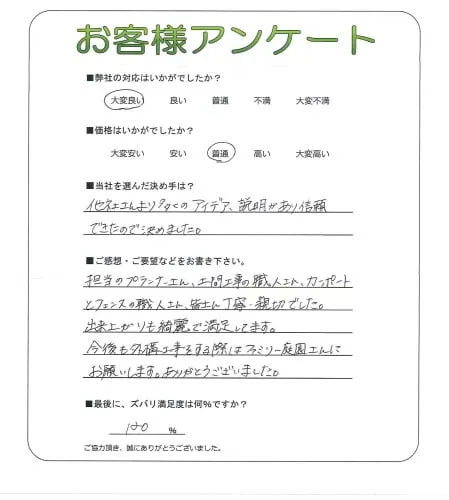 お客様アンケート
■弊社の対応はいかがでしたか？
大変良い 良い 普通 不満 大変不満
■価格はいかがでしたか？
大変安い 安い 普通 高い 大変高い
■当社を選んだ決め手は？
他社さんより多くのアイデア、説明があり信頼
できたので決めました。
■ご感想・ご要望などをお書き下さい。
担当のプランナーさん、土間工事の職人さん、カーポート
とフェンスの職人さん、皆さん丁寧で親切でした。
出来上がりも綺麗で満足してます。
今後も外構工事をする際はファミリー庭園さんに
お願いします。ありがとうございました。
■最後に、ズバリ満足度は何%ですか？
120 %
ご協力頂き、誠にありがとうございました。